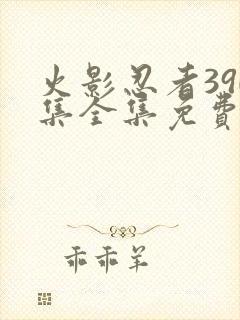 火影忍者39
集全集免费
乖乖羊